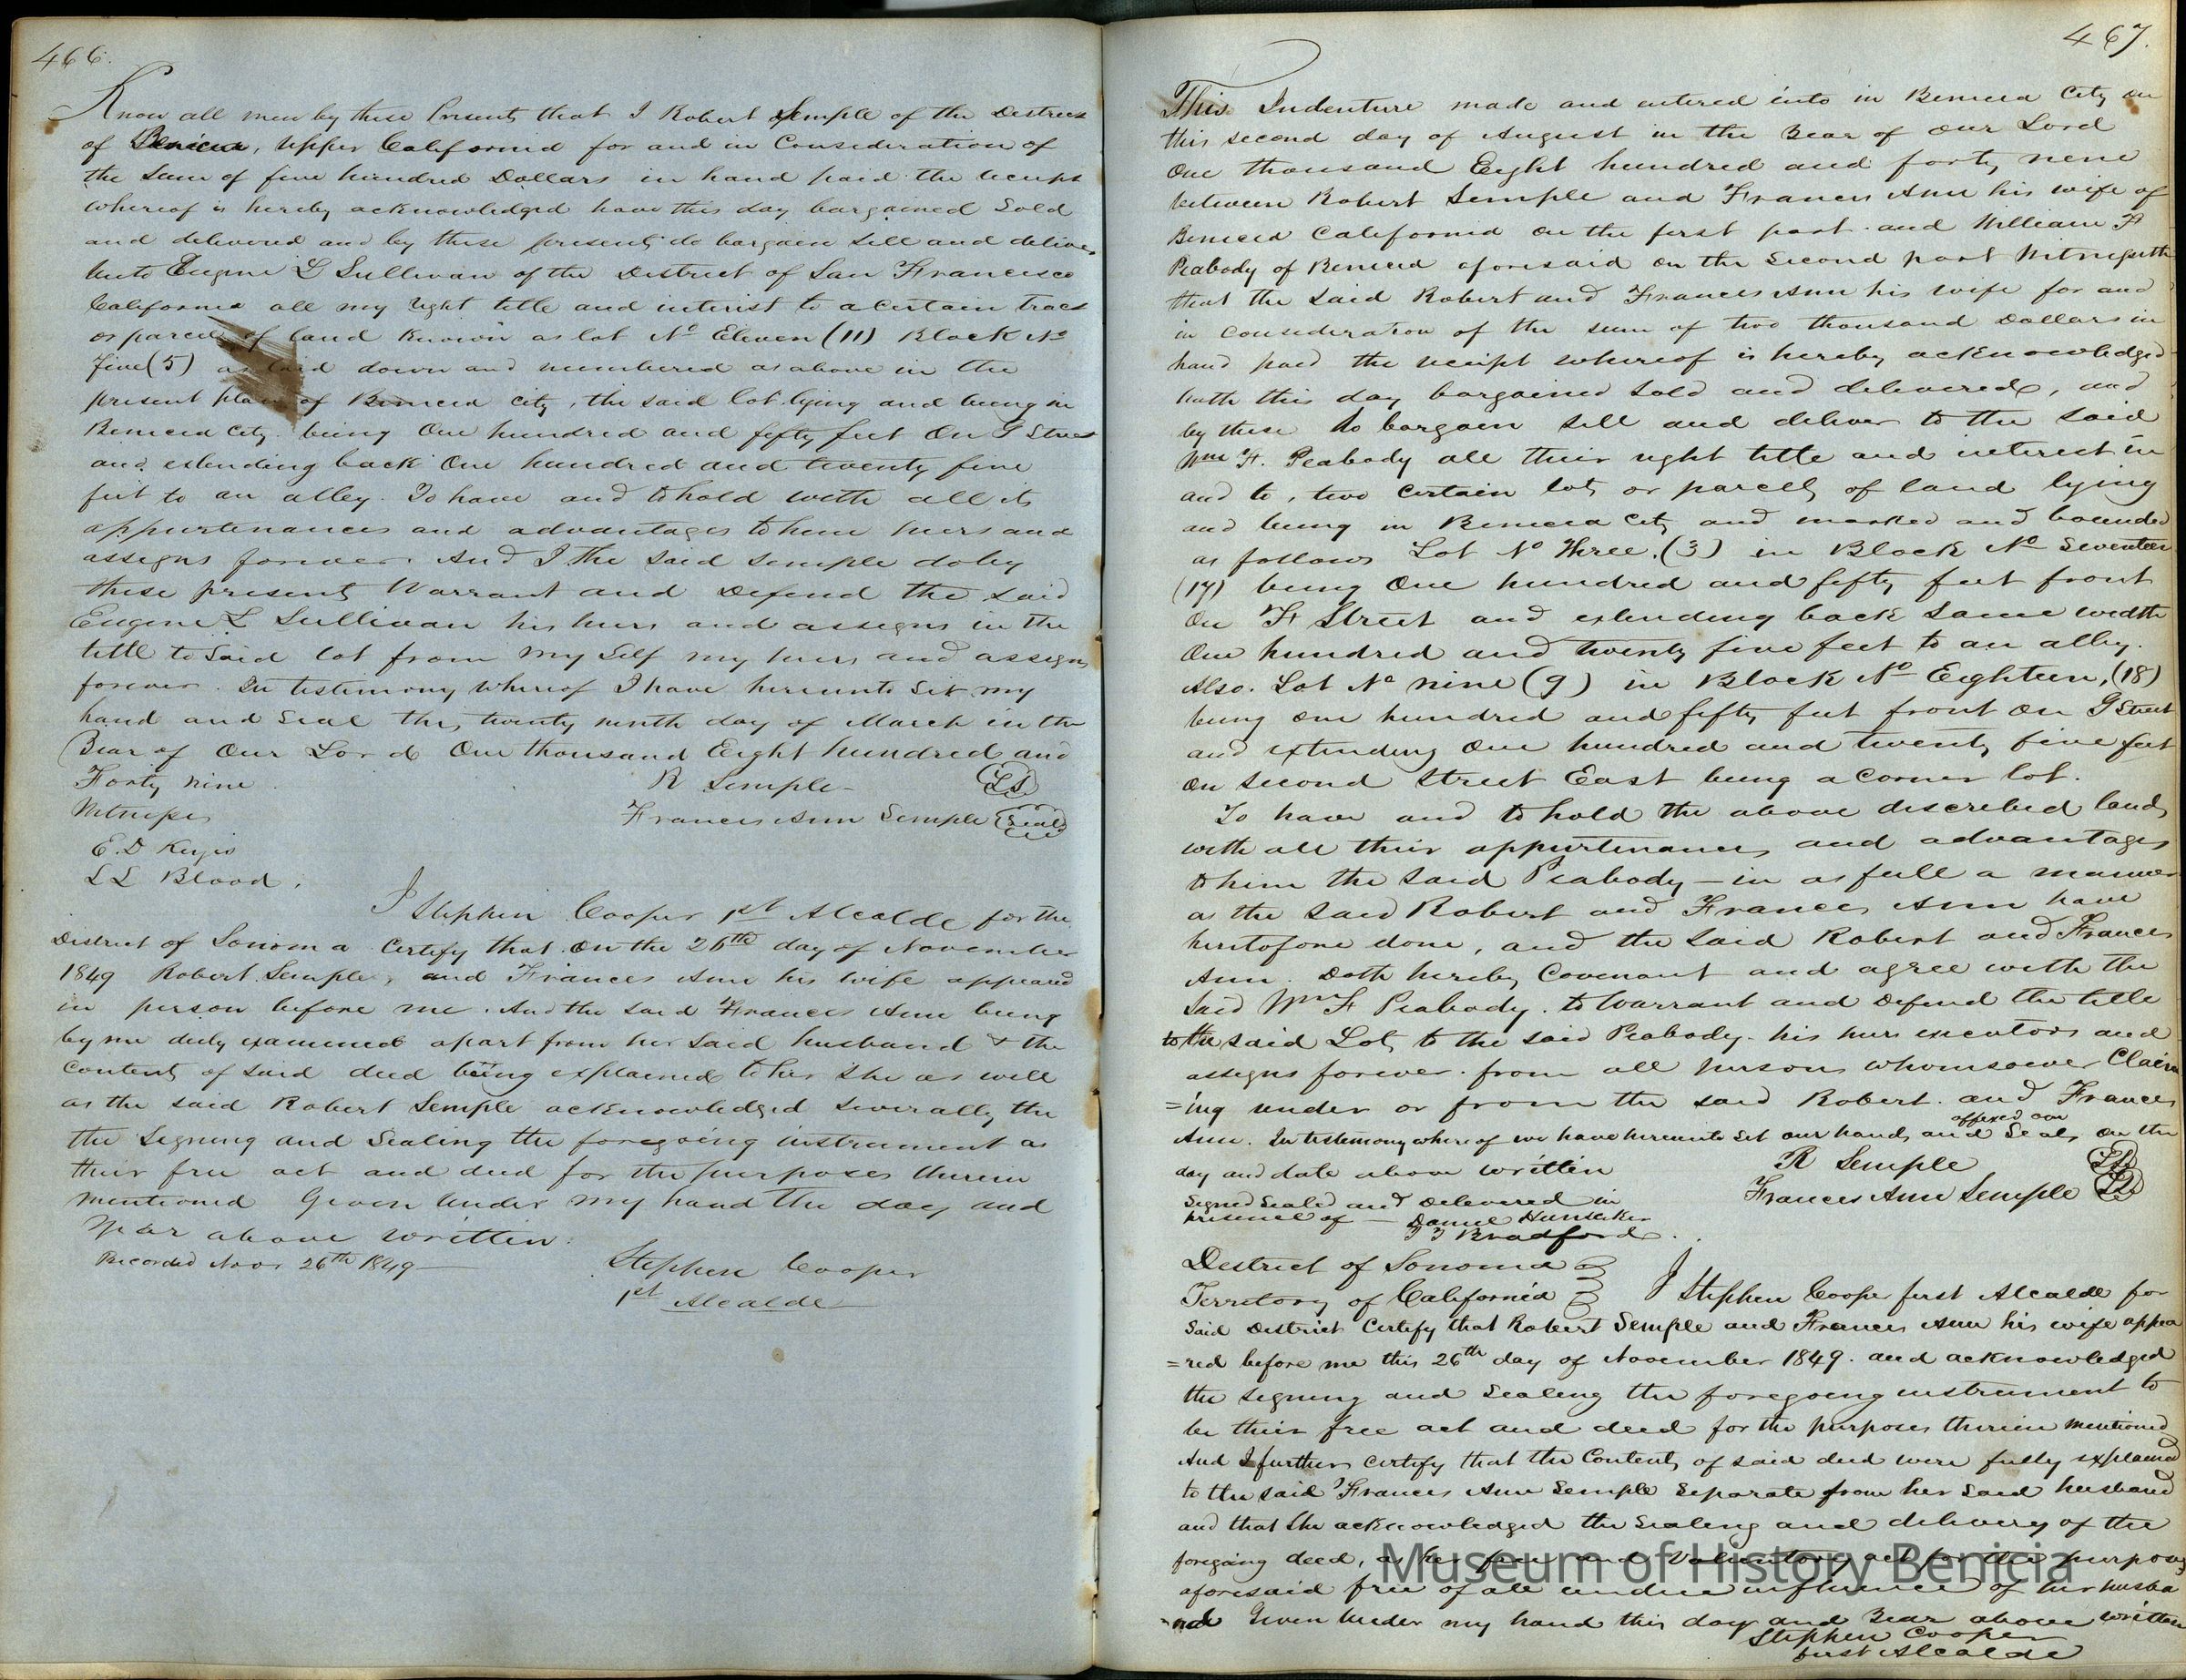 466.
Know all men by these Presents that I Robert Semple of the District
of Benicia, Upper California for and in Consideration of
the Sum of five hundred Dollars in hand paid the receipt
whereof is hereby acknowledged have this day bargained Sold
and delivered and by these presents do bargain Sell and deliver
unto Eugene L Sullivan of the District of San Francisco
California all my right title and interist to a certain tract
or parcel of land Known as lot No Eleven (11) Block No
five (5) as laid down and numbered as above in the
present plan of Benicia City, the said lot lying and being in
Benicia City being One hundred and fifty feet On G Street
and extending back One hundred and twenty five
feet to an alley. To have and to hold with all its
appurtenances and advantages to him heirs and
assigns forever. And I the Said Semple do by
these presents Warrant and Defend the said
Eugene L Sullivan his heirs and assigns in the
title to Said lot from My Self my heirs and assigns
forever. In testimony whereof I have hereunto Set my
hand and Seal this twenty ninth day of March in the
Year of Our Lord One thousand Eight hundred and
Forty nine R Semple LS
Witnesses Frances Ann Semple Seal
E. D Keyes
L L Blood.
I Stephen Cooper 1st Alcalde for the
District of Sonoma Certify that On the 26th day of November
1849 Robert Semple, and Frances Ann his wife appeared
in person before me. And the said Frances Ann being
by me duly examined apart from her Said husband & the
Contents of Said deed being explained to her She as well
as the said Robert Semple acknowledged Severally the
the Signing and Sealing the foregoing instrument as
their free act and deed for the purposes therein
mentioned Given Under my hand the day and
Year above written.
Recorded Novr 26th 1849 Stephen Cooper
1st Alcalde
467.
This Indenture made and entered into in Benicia City on
this second day of August in the Year of our Lord
One thousand Eight hundred and forty nine
between Robert Semple and Frances Ann his wife of
Benicia California on the first part and William F
Peabody of Benicia aforesaid on the Second part Witnesseth
that the Said Robert and Frances Ann his wife for and
in consideration of the sum of two thousand Dollars in
hand paid the receipt whereof is hereby acknowledged
hath this day bargained Sold and delivered, and
by these do bargain Sell and deliver to the Said
Wm F. Peabody all their right title and interest in
and to, two certain lots or parcels of land lying
and being in Benicia City and marked and bounded
as follows Lot No Three (3) in Block No Seventeen
(17) being One hundred and fifty feet front
On F Street and extending back Same width
One hundred and twenty five feet to an alley.
Also. Lot No nine (9) in Block No Eighteen, (18)
being one hundred and fifty feet front on G Street
and extending One hundred and twenty five feet
on Second Street East being a Corner lot.
To have and to hold the above described lands
with all their appurtenances and advantages
to him the Said Peabody — in as full a manner
as the Said Robert and Frances Ann have
heretofore done, and the said Robert and Frances
Ann. Doth hereby Covenant and agree with the
Said Wm F Peabody. to Warrant and Defend the title
to the said Lots to the said Peabody. his heirs executors and
assigns forever. from all persons whomsoever Claim
=ing under or from the said Robert. and Frances
Ann. In testimony where of we have hereunto Set our hands and affixed our Seals on the
day and date above written R Semple LS
Signed Sealed and Delivered in Frances Ann Semple LS
presence of — Daniel Hunsaker
J J Bradford.
District of Sonoma
Territory of California I Stephen Cooper first Alcalde for
Said District Certify that Robert Semple and Frances Ann his wife appea
=red before me this 26th day of November 1849. and acknowledged
the signing and Sealing the foregoing instrument to
be their free act and deed for the purposes therein mentioned
And I further Certify that the Contents of said deed were fully explained
to the said Frances Ann Semple Separate from her Said husband
and that She acknowledged the Sealing and delivery of the
foregoing deed, as her free and Voluntary act for the purposes
aforesaid free of all undue influence of her husba
=nd Given Under my hand this day and Year above written
Stephen Cooper
first Alcalde
Museum of History Benicia